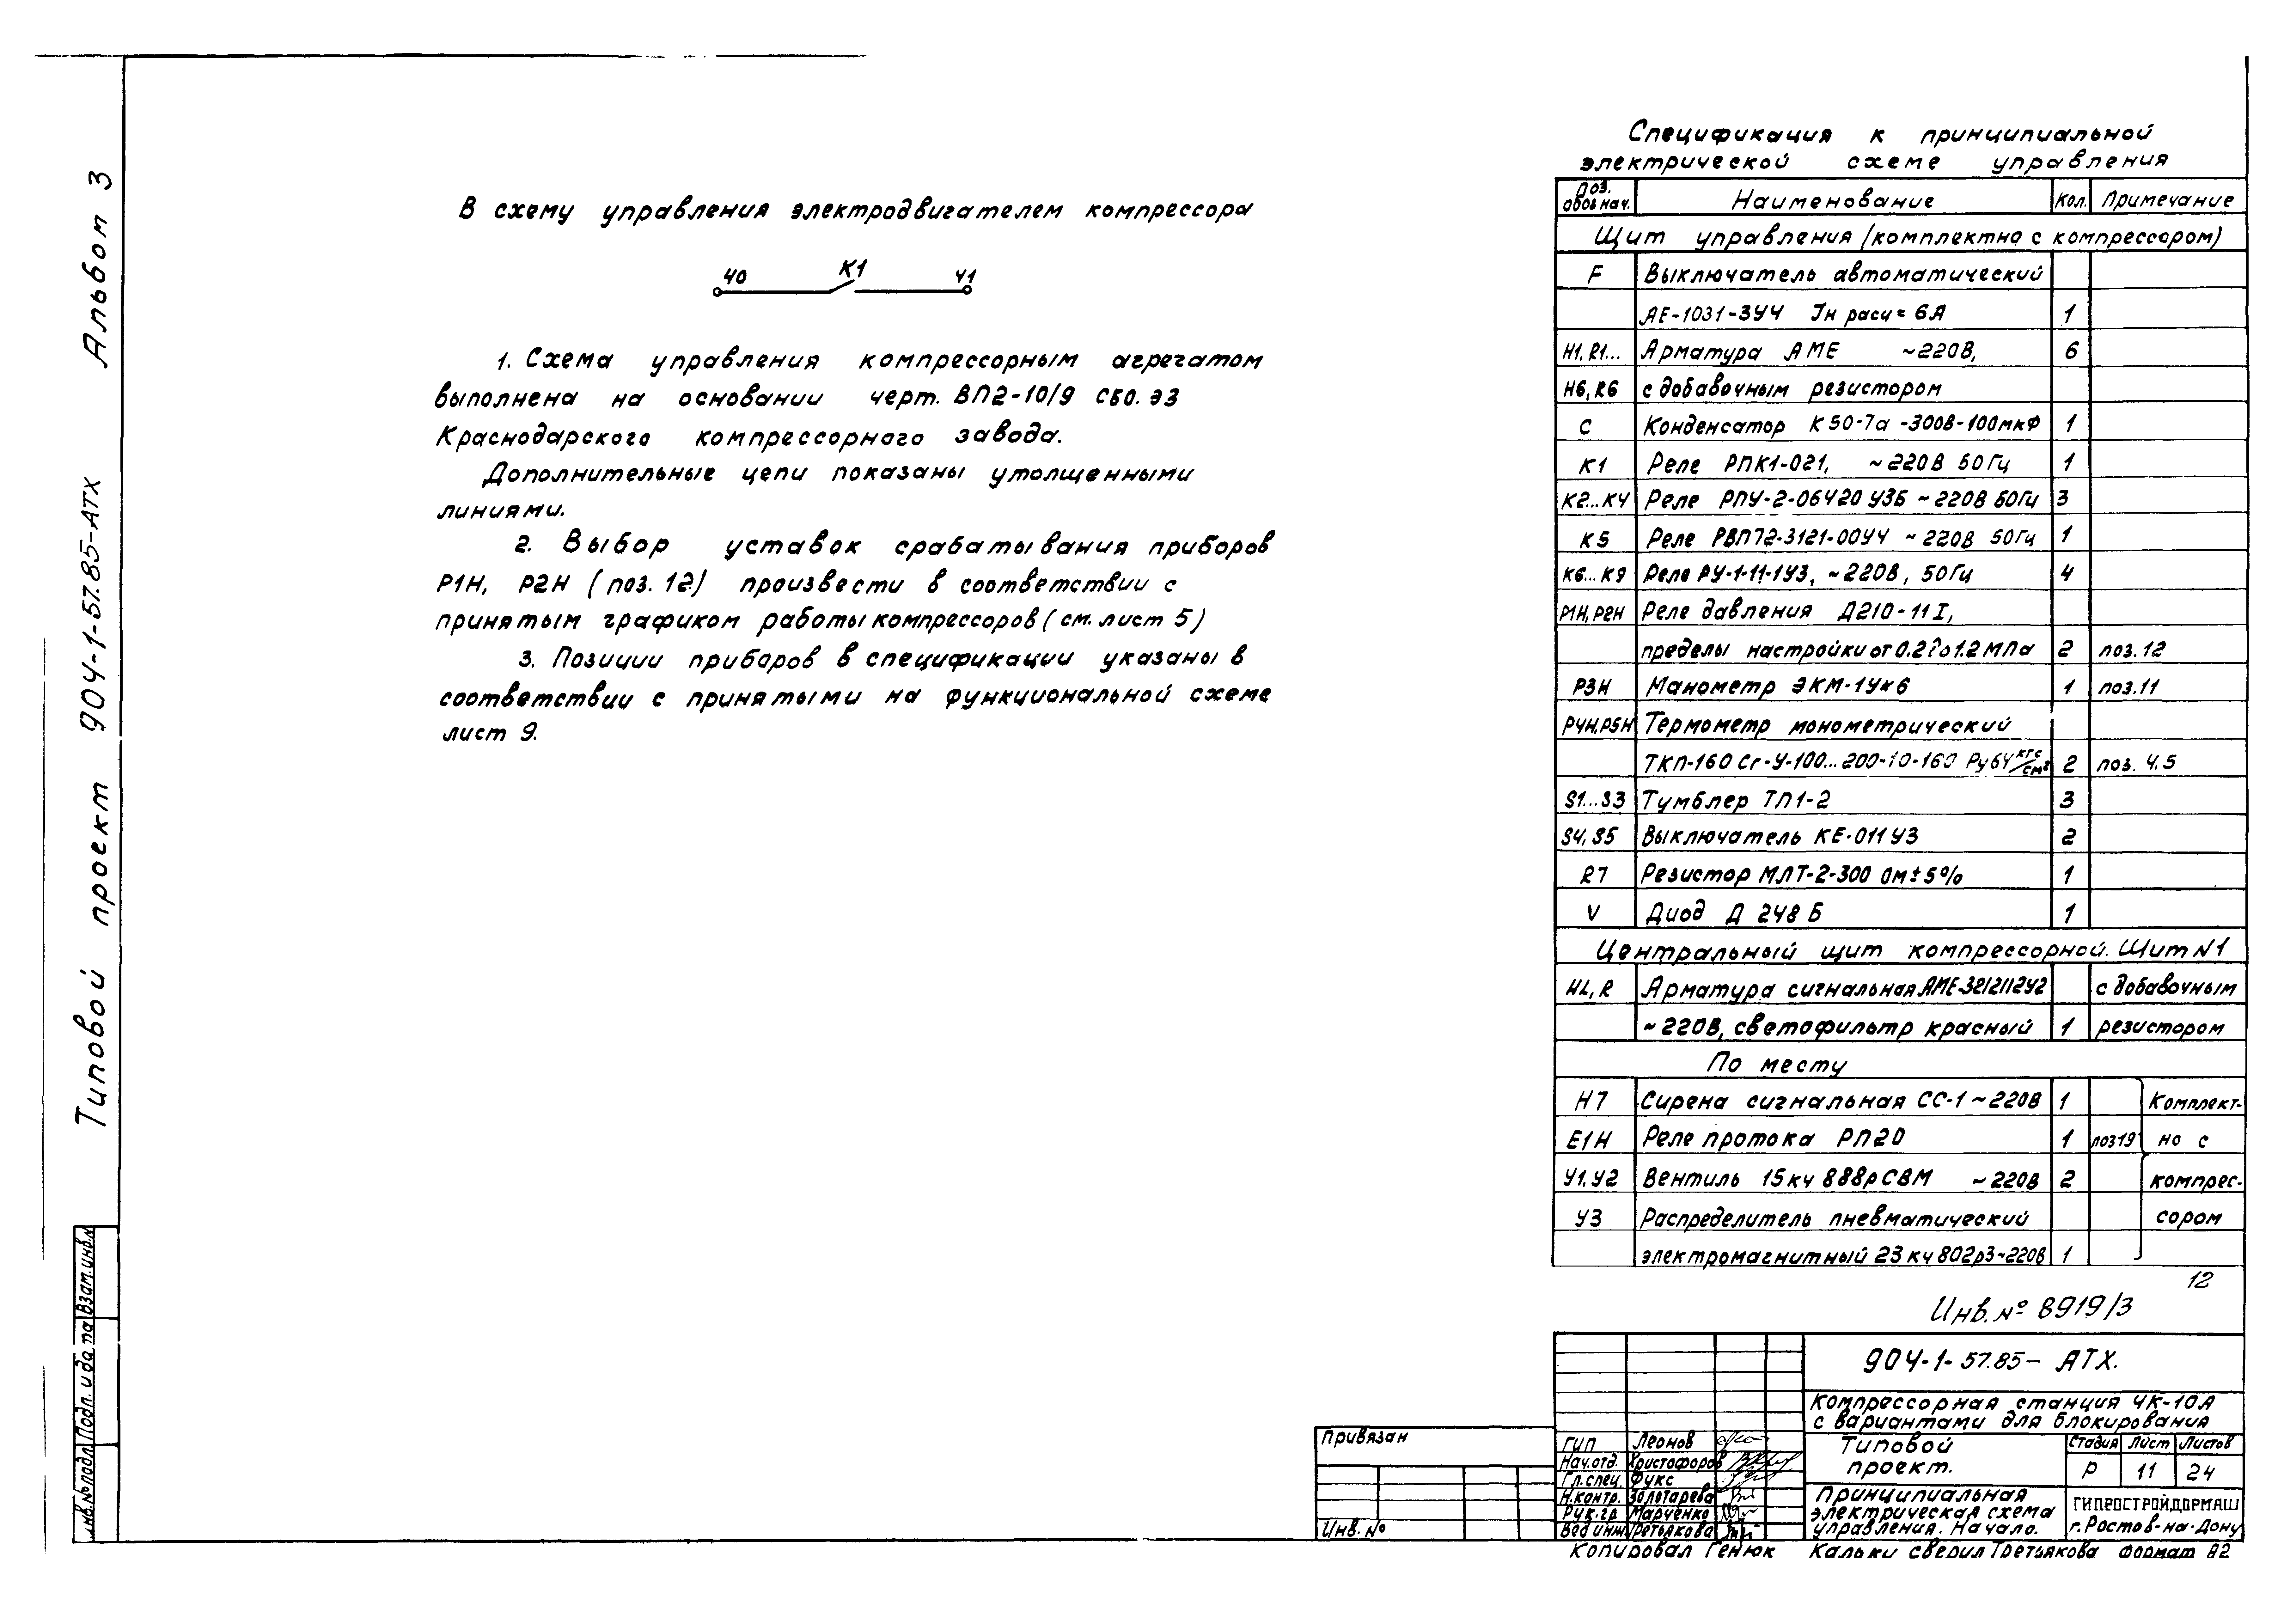 Альбом 3
Типовой проект 904-1-57.85-АТХ
В схему управления электродвигателем компрессора
40 К1 41
1. Схема управления компрессорным агрегатом
выполнена на основании черт. ВП2-10/9 СБО. ЭЗ
Краснодарского компрессорного завода.
Дополнительные цепи показаны утолщенными
линиями.
2. Выбор уставок срабатывания приборов
Р1Н, Р2Н (поз. 12) произвести в соответствии с
принятым графиком работы компрессоров (см. лист 5)
3. Позиции приборов в спецификации указаны в
соответствии с принятыми на функциональной схеме
лист 9.
Спецификация к принципиальной
электрической схеме управления
Поз. обознач. Наименование Кол. Примечание
Щит управления (комплектна с компрессором)
F Выключатель автоматический
АЕ-1031-3У4 Iн расц = 6А 1
Н1, R1... Арматура АМЕ ~220В, 6
Н6, R6 с добавочным резистором
С Конденсатор К50-7а -300В-100мкФ 1
К1 Реле РПК1-021, ~220В 50Гц 1
К2...К4 Реле РПУ-2-06420 У3Б ~220В 50Гц 3
К5 Реле РВП72-3121-00У4 ~220В 50Гц 1
К6...К9 Реле РУ-1-11-1У3, ~220В, 50Гц 4
Р1Н, Р2Н Реле давления Д210-11I,
пределы настройки от 0.2 до 1.2 МПа 2 поз. 12
Р3Н Манометр ЭКМ-1Ух6 1 поз. 11
Р4Н, Р5Н Термометр монометрический
ТКП-160 Сг-У-100...200-10-160 Ру64 кгс/см² 2 поз. 4.5
S1...S3 Тумблер ТП1-2 3
S4, S5 Выключатель КЕ-011 У3 2
R7 Резистор МЛТ-2-300 Ом±5% 1
V Диод Д 248 Б 1
Центральный щит компрессорной. Щит N1
HL, R Арматура сигнальная АМЕ-3212112У2 с добавочным
~220В, светофильтр красный 1 резистором
По месту
Н7 Сирена сигнальная СС-1 ~220В 1 Комплект-
Е1Н Реле протока РП20 1 поз19 но с
У1, У2 Вентиль 15кч 888р СВМ ~220В 2 компрес-
У3 Распределитель пневматический сором
электромагнитный 23кч 802р3~220В 1
12
Инв. № 8919/3
904-1-57.85-АТХ.
Компрессорная станция 4К-10А
с вариантами для блокирования
Типовой
проект.
Стадия Лист Листов
Р 11 24
Принципиальная
электрическая схема
управления. Начало.
ГИПРОСТРОЙДОРМАШ
г. Ростов-на-Дону
Привязан
Инв. №
ГИП Леонов
Нач.отд. Христофоров
Гл.спец. Фукс
Н.контр. Золотарева
Рук.гр Марченко
Вед инж. Третьякова
Копировал Генюк Кальки сверил Третьякова формат А2
Инв.№подл. Подп. и дата Взам.инв.№